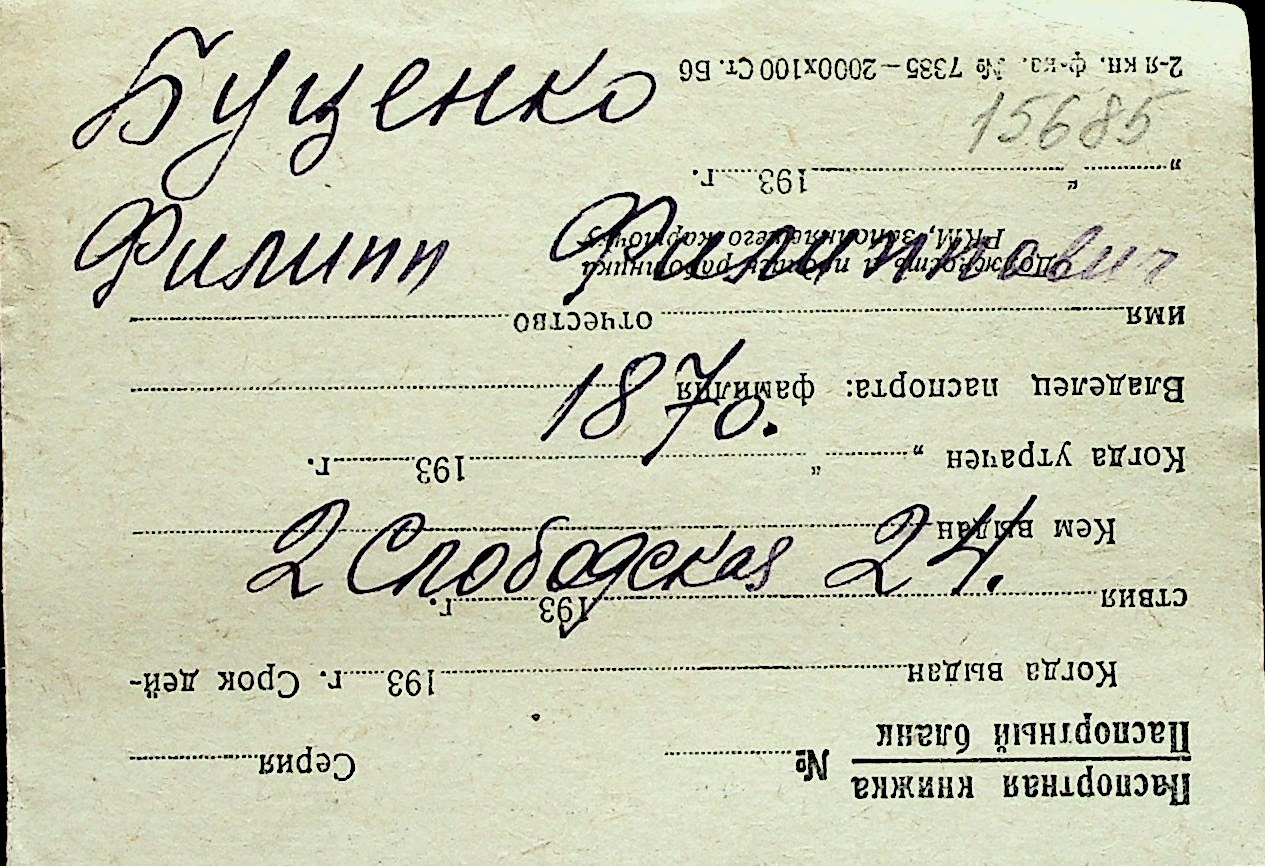 Буценко
Филипп Филиппович
1870.
2 Слободская 24.
15685
Паспортная книжка
Паспортный бланк
№ Серия
Когда выдан 193 г. Срок дей-
ствия 193 г.
Кем выдан
Когда утрачен „ “ 193 г.
Владелец паспорта: фамилия
имя отчество
Должность и подпись работника
РКМ, заполнявшего карточку
„ “ 193 г.
2-я кн. ф-ка. № 7385—2000х100 Ст. Б6